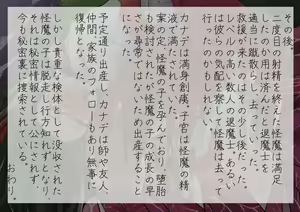 その後。
二度目の射精を終えた怪魔は満足
したのか用済みだと退魔士を
適当に蹴散らして去っていった。
救援が来たのはその少し後だった。
レベルの高い数人の退魔士。あるい
は彼らの気配を察して怪魔は去って
行ったのかもしれない。
カナデは満身創痍、子宮は怪魔の精
液で満たされていた。
案の定、怪魔の子を孕んでおり、堕胎
も検討されたが怪魔の子の成長の早
さが尋常ではないため出産すること
になった。
予定通り出産し、カナデは師や友人、
仲間、家族のフォローもあり無事に
復帰となった。
しかし貴重な検体として没収された
怪魔の子は脱走し行方知れずとなり、
それは秘密情報として公にされず、
今も秘密裏に捜索されている。
おわり。